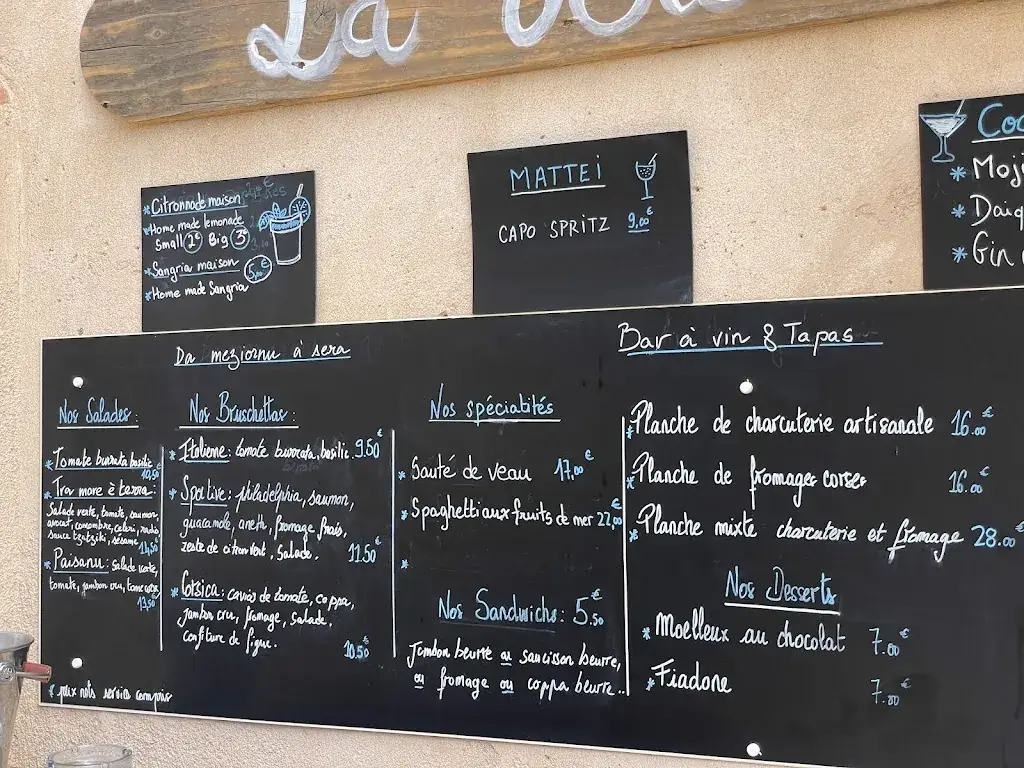 La
Citronnade maison
Home made lemonade
Small 2€ Big 3€
Sangria maison 5,00€
Home made Sangria
MATTEI
CAPO SPRITZ 9,00€
Coc
* Moji
* Daiq
* Gin
Da meziornu à sera
Nos Salades :
* Tomate burrata basilic
10,50
* Tra mare è terra :
Salade verte, tomate, saumon,
avocat, concombre, celeri, radis
sauce tzatziki, sésame
14,50
* Paisanu : salade verte,
tomate, jambon cru, tome corse
13,50
* prix nets service compris
Nos Bruschettas :
* Italienne : tomate burrata, basilic 9.50€
* Sportive : philadelphia, saumon,
guacamole, aneth, fromage frais,
zeste de citron vert, salade. 11.50€
* Corsica : caviar de tomate, coppa,
jambon cru, fromage, salade,
confiture de figue. 10.50€
Nos spécialités
* Sauté de veau 17,00€
* Spaghetti aux fruits de mer 22,00€
*
Nos Sandwichs : 5,50
Jambon beurre ou saucisson beurre,
ou fromage ou coppa beurre..
Bar à vin & Tapas
* Planche de charcuterie artisanale 16.00€
* Planche de fromages corses 16.00€
* Planche mixte charcuterie et fromage 28.00€
Nos Desserts
* Moelleux au chocolat 7.00€
* Fiadone 7.00€